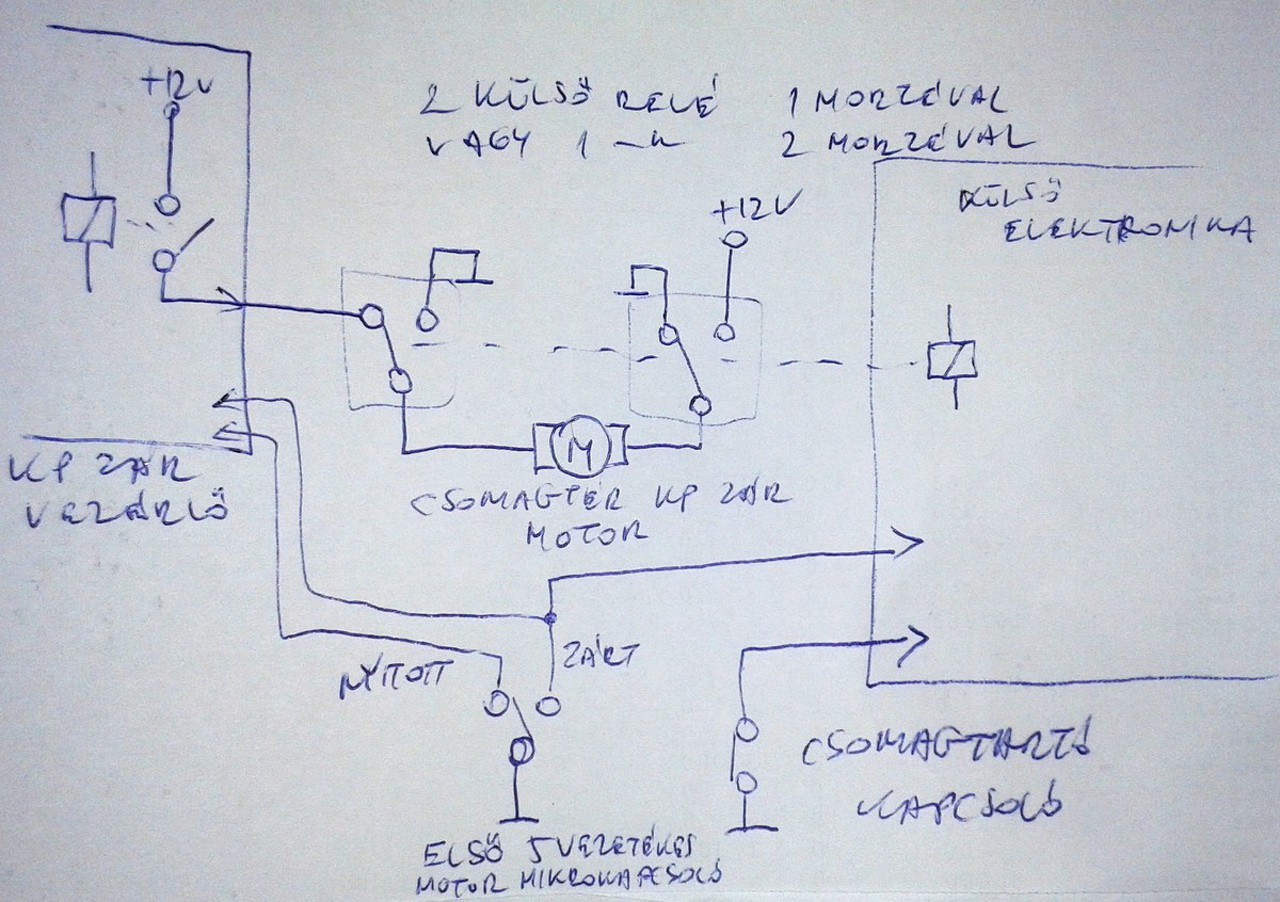 +12V
2 KÜLSŐ RELÉ 1 MORZÉVAL
VAGY 1 -"- 2 MORZÉVAL
+12V
KÜLSŐ
ELEKTRONIKA
KP ZÁR
VEZÉRLŐ
M
CSOMAGTÉR KP ZÁR
MOTOR
NYITOTT
ZÁRT
CSOMAGTARTÓ
KAPCSOLÓ
ELSŐ 5 VEZETÉKES
MOTOR MIKROKAPCSOLÓ